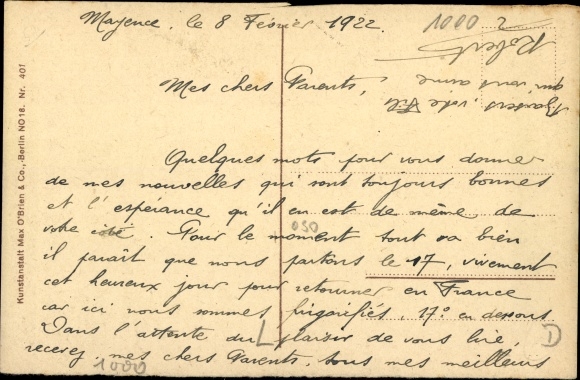 Mayence, le 8 Février 1922.
Mes chers Parents,
Quelques mots pour vous donner
de mes nouvelles qui sont toujours bonnes
et l'espérance qu'il en est de même de
votre côté. Pour le moment tout va bien
il paraît que nous partons le 17, vivement
cet heureux jour pour retourner en France
car ici nous sommes frigorifiés, 17° en dessous
Dans l'attente du plaisir de vous lire,
recevez, mes chers Parents, tous mes meilleurs
Baisers votre Fils
qui vous aime
Robert
1000 2
050
L
D
1000
Kunstanstalt Max O'Brien & Co., Berlin NO18. Nr. 401